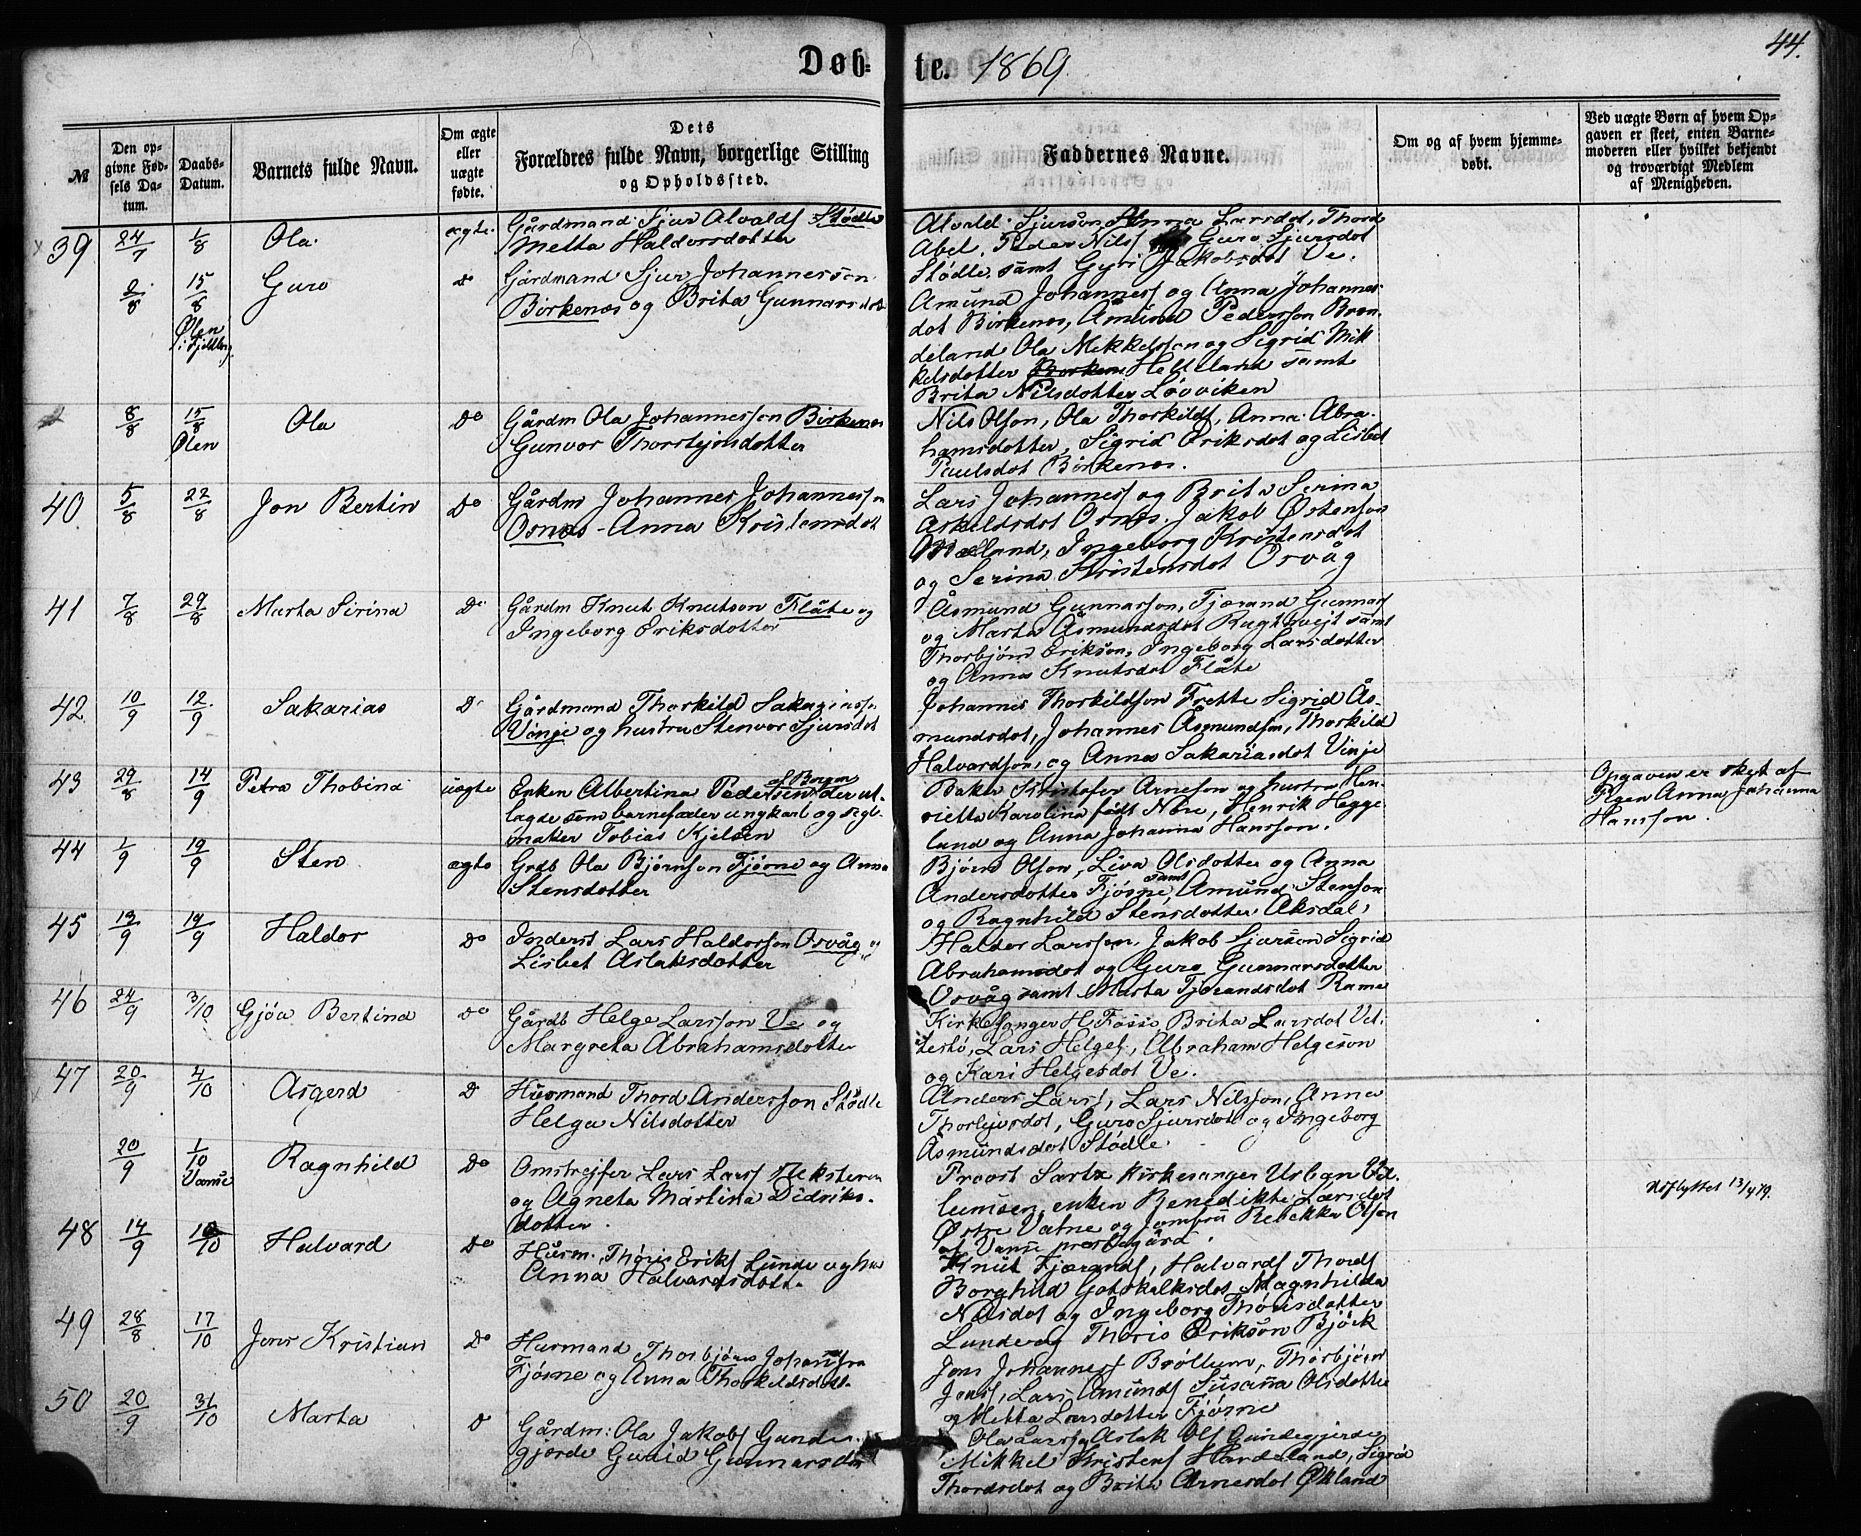 Døb-
te. 1869.
44.
№
Den opgivne Fødsels Datum.
Daabs-Datum.
Barnets fulde Navn.
Om ægte eller uægte fødte.
Dets Forældres fulde Navn, borgerlige Stilling og Opholdssted.
Faddernes Navne.
Om og af hvem hjemmedøbt.
Ved uægte Børn af hvem Opgaven er skeet, enten Barnemoderen eller hvilket bekjendt og troværdigt Medlem af Menigheden.
39 24/7 1/8 Ola ægte
Gårdmand Sjur Alvaldss Stødle
Metta Haldorsdotter
Alvald Sjurson, Anna Larsdot, Thord
Abel, Peder Nilss Guro Sjursdot
Stødle samt Gyri Jakobsdot Ve.
2/8 15/8 Ølen i Fjeldberg Guro Do
Gårdmand Sjur Johannesson
Birkenes og Brita Gunnarsdot
Amund Johanness og Anna Johannes
dot Birkenes, Amund Pedersson Bron
deland Ola Mekkelsson og Sigrid Mik
kelsdotter Helleland samt
Brita Nilsdotter Løvviken
8/8 15/8 Ølen Ola Do
Gårdm Ola Johannesson Birkenes
Gunvor Thorstejnsdotter
Nils Olson, Ola Thorkilds, Anna Abra
hamsdotter, Sigrid Eriksdot og Lisbet
Paulsdot Birkenes.
40 5/8 22/8 Jon Bertin Do
Gårdm Johannes Johannesson
Osnes - Anna Kristensdot
Lars Johanness og Brita Serina
Askildsdot Osnes. Jakob Østenson
Mæland, Ingeborg Kristensdot
og Serina Kristensdot Osvåg
41 7/8 29/8 Marta Sirina Do
Gårdm Knut Knutson Flåte og
Ingeborg Eriksdotter
Åsmund Gunnarson, Fjærand Gunnars
og Marta Åsmundsdot Rugtvejt samt
Thorbjørn Erikson, Ingeborg Larsdotter
og Anna Knutsdot Flåte
42 10/9 12/9 Sakarias Do
Gårdmand Thorkild Sakariass
Vinje og hustru Stenvor Sjursdot
Johannes Thorkildson Frette Sigrid Ås-
mundsdot, Johannes Åsmundson, Thorkild
Halvardson, og Anna Sakariasdot Vinje
43 29/8 14/9 Petra Thobina uægte
Enken Albertina Pedersen af Bergen der ut-
lagde som barnefader ungkarl og segl-
maker Tobias Kjelsen
Baker Kristofer Arneson og hustru Hen-
riette Karolina født Nøre, Henrik Hegge-
lund og Anna Johanna Hansson.
Opgaven er skjet af
Pigen Anna Johanna
Hansson.
44 1/9 19/9 Sten ægte
Grdb Ola Bjørnson Fjøsne og Anna
Stensdotter
Bjørn Olson, Liva Olsdotter og Anna
Andersdotter Fjøsne, samt Amund Stenson
og Ragnhild Stensdotter Aksdal,
45 13/9 19/9 Haldor Do
Inderst Lars Haldorson Osvåg og
Lisbet Aslaksdotter
Haldor Larsson, Jakob Sjurson Sigrid
Abrahamsdot og Guro Gunnarsdotter
Osvåg samt Marta Fjærandsdot Rame
46 24/9 3/10 Gjøa Bertina Do
Gårdb Helge Larsson Ve og
Margreta Abrahamsdotter
Kirkesanger H. Fosse, Brita Larsdot Vet-
testø, Lars Helges, Abraham Helgeson
og Kari Helgesdot Ve.
47 20/9 4/10 Asgerd D
Husmand Thord Andersson Stødle
Helga Nilsdotter
Anders Larss, Lars Nilsson, Anna
Thorlejvsdot, Guro Sjursdot og Ingeborg
Åsmundsdot Stødle.
20/9 1/10 Vanse Ragnhild Do
Omstrejfer Lars Larss Æksteren
og Agneta Martina Didriks-
dotter.
Provst Sartz Kirkesanger Urban
enken Benedikte Larsdot
Østre Vatne og Jomfru Rebekka Olson
af Vanse prestegård.
Udflyttet 13/4 79.
48 14/9 10/10 Halvard Do
Husm. Thoris Eriks Lunde og hus
Anna Halvardsdotter
Knut Fjærands, Halvards Thords
Borghild Gotskalksdot Magnhilda
Nilsdot og Ingeborg Thorisdotter
Lunde og Thoris Erikson Bjørk
49 28/8 17/10 Jons Kristian Do
Husmand Thorbjørn Johannson
Fjøsne og Anna Thorkildsdot
Jens Johanness Brøllum, Thorbjørn
Jonss, Lars Amunds Susanna Olsdotter
og Metta Larsdotter Fjøsne
50 20/9 31/10 Marta D
Gårdm: Ola Jakobs Gunde-
gjerde Gurid Gunnarsdot
Ola Larsson Aslak Ols Gundegjerde
Mikkel Kristens Hardeland, Sigrid
Thordsdot og Brita Arnesdot Økland